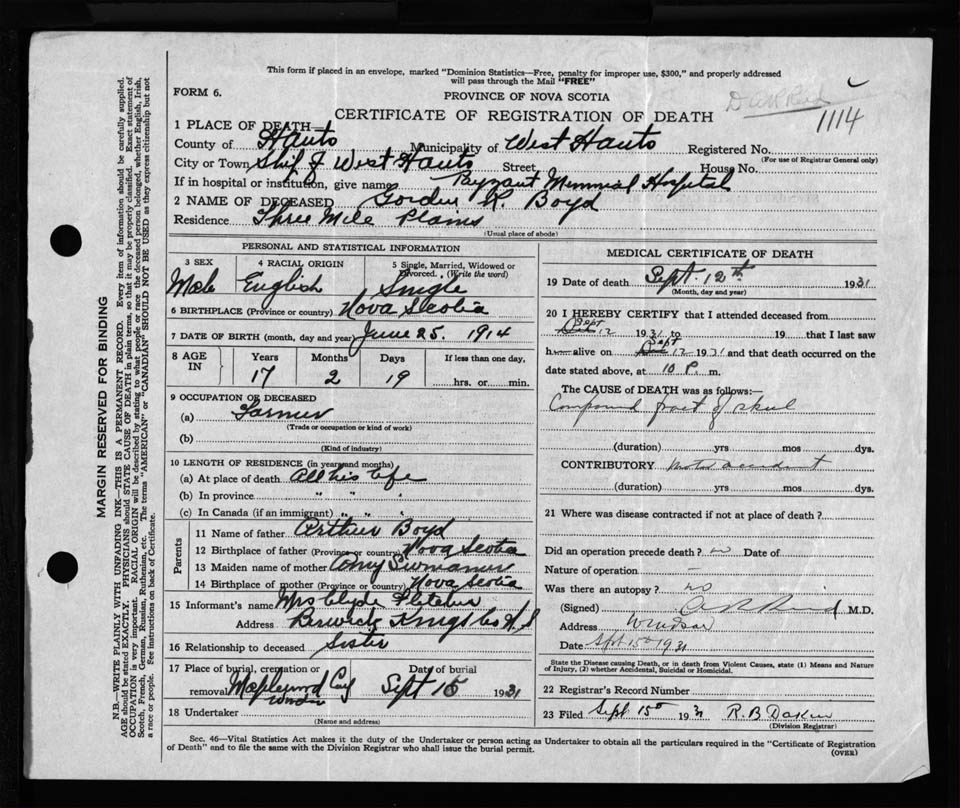 This form if placed in an envelope, marked "Dominion Statistics—Free, penalty for improper use, $300," and properly addressed
will pass through the Mail "FREE"
FORM 6.
PROVINCE OF NOVA SCOTIA
1114
CERTIFICATE OF REGISTRATION OF DEATH
1 PLACE OF DEATH—
County of Hants Municipality of West Hants Registered No.
(For use of Registrar General only)
City or Town West Hants Street House No.
If in hospital or institution, give name Payzant Memorial Hospital
2 NAME OF DECEASED Gordon R. Boyd
Residence Three Mile Plains
(Usual place of abode)
PERSONAL AND STATISTICAL INFORMATION
3 SEX
Male
4 RACIAL ORIGIN
English
5 Single, Married, Widowed or
Divorced. (Write the word)
Single
6 BIRTHPLACE (Province or country) Nova Scotia
7 DATE OF BIRTH (month, day and year) June 25. 1914
8 AGE IN
Years Months Days If less than one day,
17 2 19 hrs. or min.
9 OCCUPATION OF DECEASED
(a) Farmer
(Trade or occupation or kind of work)
(b)
(Kind of industry)
10 LENGTH OF RESIDENCE (in years and months)
(a) At place of death All his life
(b) In province " " "
(c) In Canada (if an immigrant) " " "
Parents
11 Name of father Arthur Boyd
12 Birthplace of father (Province or country) Nova Scotia
13 Maiden name of mother
14 Birthplace of mother (Province or country) Nova Scotia
15 Informant's name Mrs Clyde Fletcher
Address Berwick Kings Co N.S
16 Relationship to deceased Sister
17 Place of burial, cremation or Date of burial
removal Maplewood Windsor Sept 15 1931
18 Undertaker
(Name and address)
MEDICAL CERTIFICATE OF DEATH
19 Date of death Sept. 12th 1931
(Month, day and year)
20 I HEREBY CERTIFY that I attended deceased from
Sept 12 1931 to 19 that I last saw
h alive on Sept 12 1931 and that death occurred on the
date stated above, at 10 P. m.
The CAUSE of DEATH was as follows:—
Compound fract of skull
(duration) yrs mos dys.
CONTRIBUTORY Motor accident
(duration) yrs mos dys.
21 Where was disease contracted if not at place of death?
Did an operation precede death? no Date of
Nature of operation —
Was there an autopsy? no
(Signed) M.D.
Address Windsor
Date Sept 15 1931
State the Disease causing Death, or in death from Violent Causes, state (1) Means and Nature
of Injury, (2) whether Accidental, Suicidal or Homicidal.
22 Registrar's Record Number
23 Filed Sept 15 1931 R. B Dakin
(Division Registrar)
Sec. 46—Vital Statistics Act makes it the duty of the Undertaker or person acting as Undertaker to obtain all the particulars required in the "Certificate of Registration
of Death" and to file the same with the Division Registrar who shall issue the burial permit.
(OVER)
MARGIN RESERVED FOR BINDING
N.B.—WRITE PLAINLY WITH UNFADING INK—THIS IS A PERMANENT RECORD. Every item of information should be carefully supplied.
AGE should be stated EXACTLY. PHYSICIANS should STATE CAUSE OF DEATH in plain terms, so that it may be properly classified. Exact statement of
OCCUPATION is very important. RACIAL ORIGIN will be described by stating to what people or race the deceased person belonged, whether English, Irish,
Scotch, French, German, Russian, Ruthenian, etc. The terms "AMERICAN" or "CANADIAN" SHOULD NOT BE USED as they express citizenship but not
a race or people. See instructions on back of Certificate.